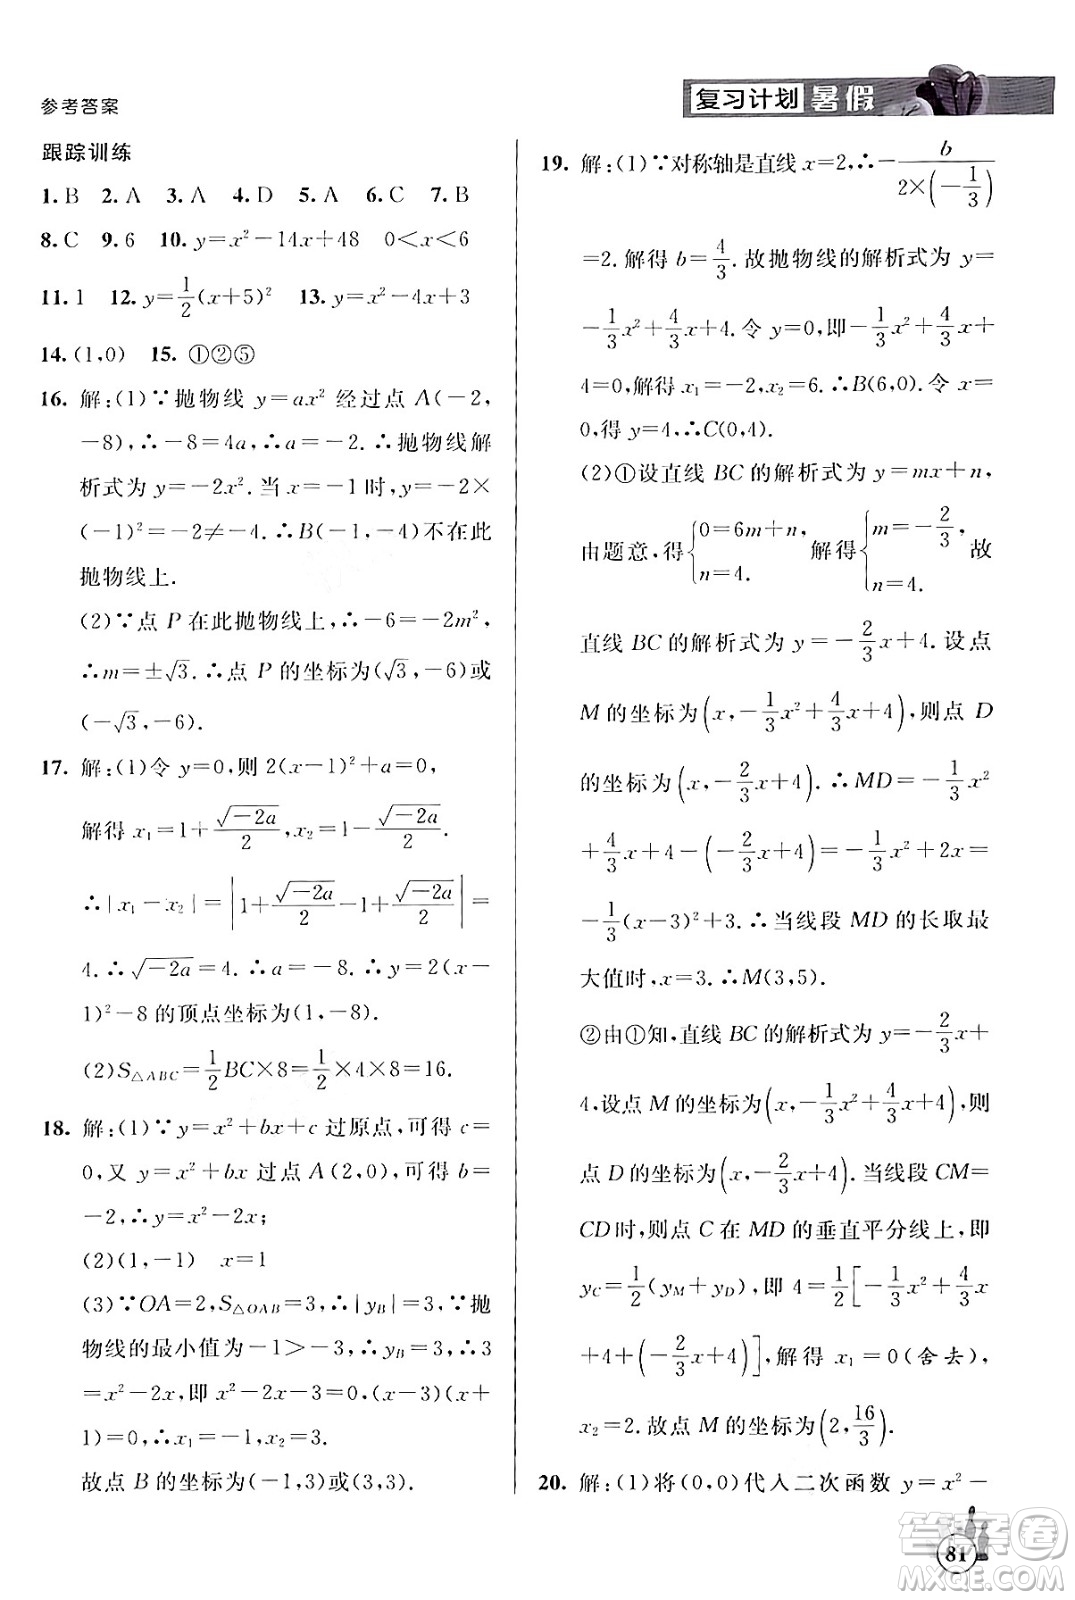 参考答案
复习计划 暑假
跟踪训练
1. B 2. A 3. A 4. D 5. A 6. C 7. B
8. C 9. 6 10. y=x²-14x+48 0<x<6
11. 1 12. y=\frac{1}{2}(x+5)² 13. y=x²-4x+3
14. (1,0) 15. ①②⑤
16. 解:(1)∵抛物线 y=ax² 经过点 A(-2,
-8),∴-8=4a,∴a=-2.∴抛物线解
析式为 y=-2x².当 x=-1 时,y=-2×
(-1)²=-2≠-4.∴B(-1,-4)不在此
抛物线上.
(2)∵点 P 在此抛物线上,∴-6=-2m²,
∴m=±√3.∴点 P 的坐标为(√3,-6)或
(-√3,-6).
17. 解:(1)令 y=0,则 2(x-1)²+a=0,
解得 x₁=1+\frac{√-2a}{2},x₂=1-\frac{√-2a}{2}.
∴|x₁-x₂|=|1+\frac{√-2a}{2}-1+\frac{√-2a}{2}|=
4.∴√-2a=4.∴a=-8.∴y=2(x-
1)²-8 的顶点坐标为(1,-8).
(2)S△ABC=\frac{1}{2}BC×8=\frac{1}{2}×4×8=16.
18. 解:(1)∵y=x²+bx+c 过原点,可得 c=
0,又 y=x²+bx 过点 A(2,0),可得 b=
-2,∴y=x²-2x;
(2)(1,-1) x=1
(3)∵OA=2,S△OAB=3,∴|y_B|=3,∵抛
物线的最小值为-1>-3,∴y_B=3,∴3
=x²-2x,即 x²-2x-3=0,(x-3)(x+
1)=0,∴x₁=-1,x₂=3.
故点 B 的坐标为(-1,3)或(3,3).
19. 解:(1)∵对称轴是直线 x=2,∴-\frac{b}{2×(-\frac{1}{3})}
=2.解得 b=\frac{4}{3}.故抛物线的解析式为 y=
-\frac{1}{3}x²+\frac{4}{3}x+4.令 y=0,即-\frac{1}{3}x²+\frac{4}{3}x+
4=0,解得 x₁=-2,x₂=6.∴B(6,0).令 x=
0,得 y=4,∴C(0,4).
(2)①设直线 BC 的解析式为 y=mx+n,
由题意,得{0=6m+n, n=4. 解得{m=-\frac{2}{3}, n=4. 故
直线 BC 的解析式为 y=-\frac{2}{3}x+4.设点
M 的坐标为(x,-\frac{1}{3}x²+\frac{4}{3}x+4),则点 D
的坐标为(x,-\frac{2}{3}x+4).∴MD=-\frac{1}{3}x²
+\frac{4}{3}x+4-(-\frac{2}{3}x+4)=-\frac{1}{3}x²+2x=
-\frac{1}{3}(x-3)²+3.∴当线段 MD 的长取最
大值时,x=3.∴M(3,5).
②由①知,直线 BC 的解析式为 y=-\frac{2}{3}x+
4,设点 M 的坐标为(x,-\frac{1}{3}x²+\frac{4}{3}x+4),则
点 D 的坐标为(x,-\frac{2}{3}x+4).当线段 CM=
CD 时,则点 C 在 MD 的垂直平分线上,即
y_C=\frac{1}{2}(y_M+y_D),即 4=\frac{1}{2}[-\frac{1}{3}x²+\frac{4}{3}x
+4+(-\frac{2}{3}x+4)],解得 x₁=0(舍去),
x₂=2.故点 M 的坐标为(2,\frac{16}{3}).
20. 解:(1)将(0,0)代入二次函数 y=x²-
81
答案卷
MXQE.COM